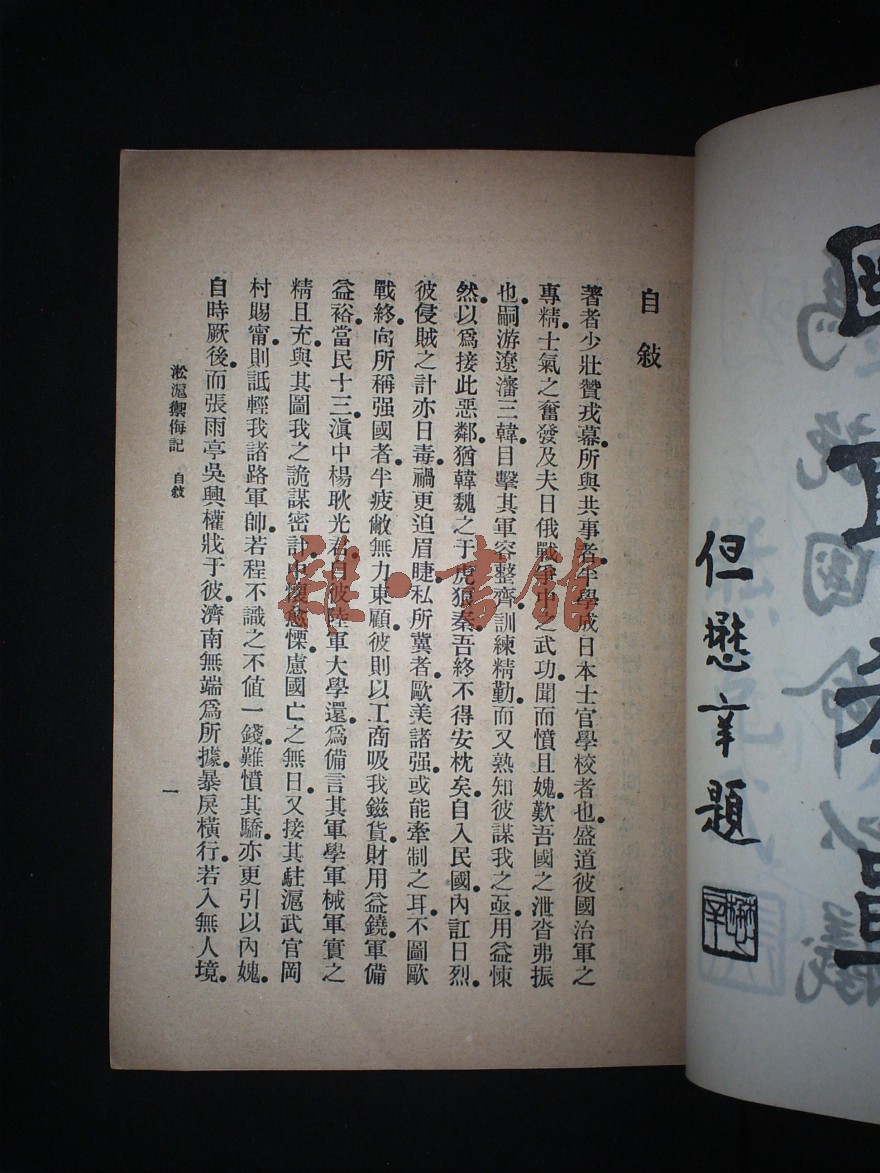 自敍
著者少壯贊戎幕所與共事者半學成日本士官學校者也盛道彼國治軍之
專精士氣之奮發及夫日俄戰爭中之武功聞而憤且媿歎吾國之泄沓弗振
也嗣游遼瀋三韓目擊其軍容整齊訓練精勤而又熟知彼謀我之亟用益悚
然以爲接此惡鄰猶韓魏之于虎狼秦吾終不得安枕矣自入民國內訌日烈
彼侵賊之計亦日毒禍更迫眉睫私所冀者歐美諸强或能牽制之耳不圖歐
戰終向所稱强國者半疲敝無力東顧彼則以工商吸我鎡貨財用益饒軍備
益裕當民十三滇中楊耿光君自彼陸軍大學還爲備言其軍學軍械軍實之
精且充與其圖我之詭謀密計中懷愁慄慮國亡之無日又接其駐滬武官岡
村賜甯則詆輕我諸路軍帥若程不識之不值一錢難憤其驕亦更引以內媿
自時厥後而張雨亭吳興權戕于彼濟南無端爲所據暴戾橫行若入無人境
淞滬禦侮記 自敍
一
雜·書館
但懋辛題